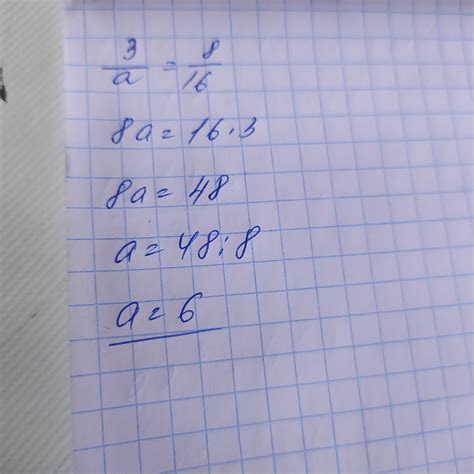 3/a = 8/16
8a = 16·3
8a = 48
a = 48:8
a = 6